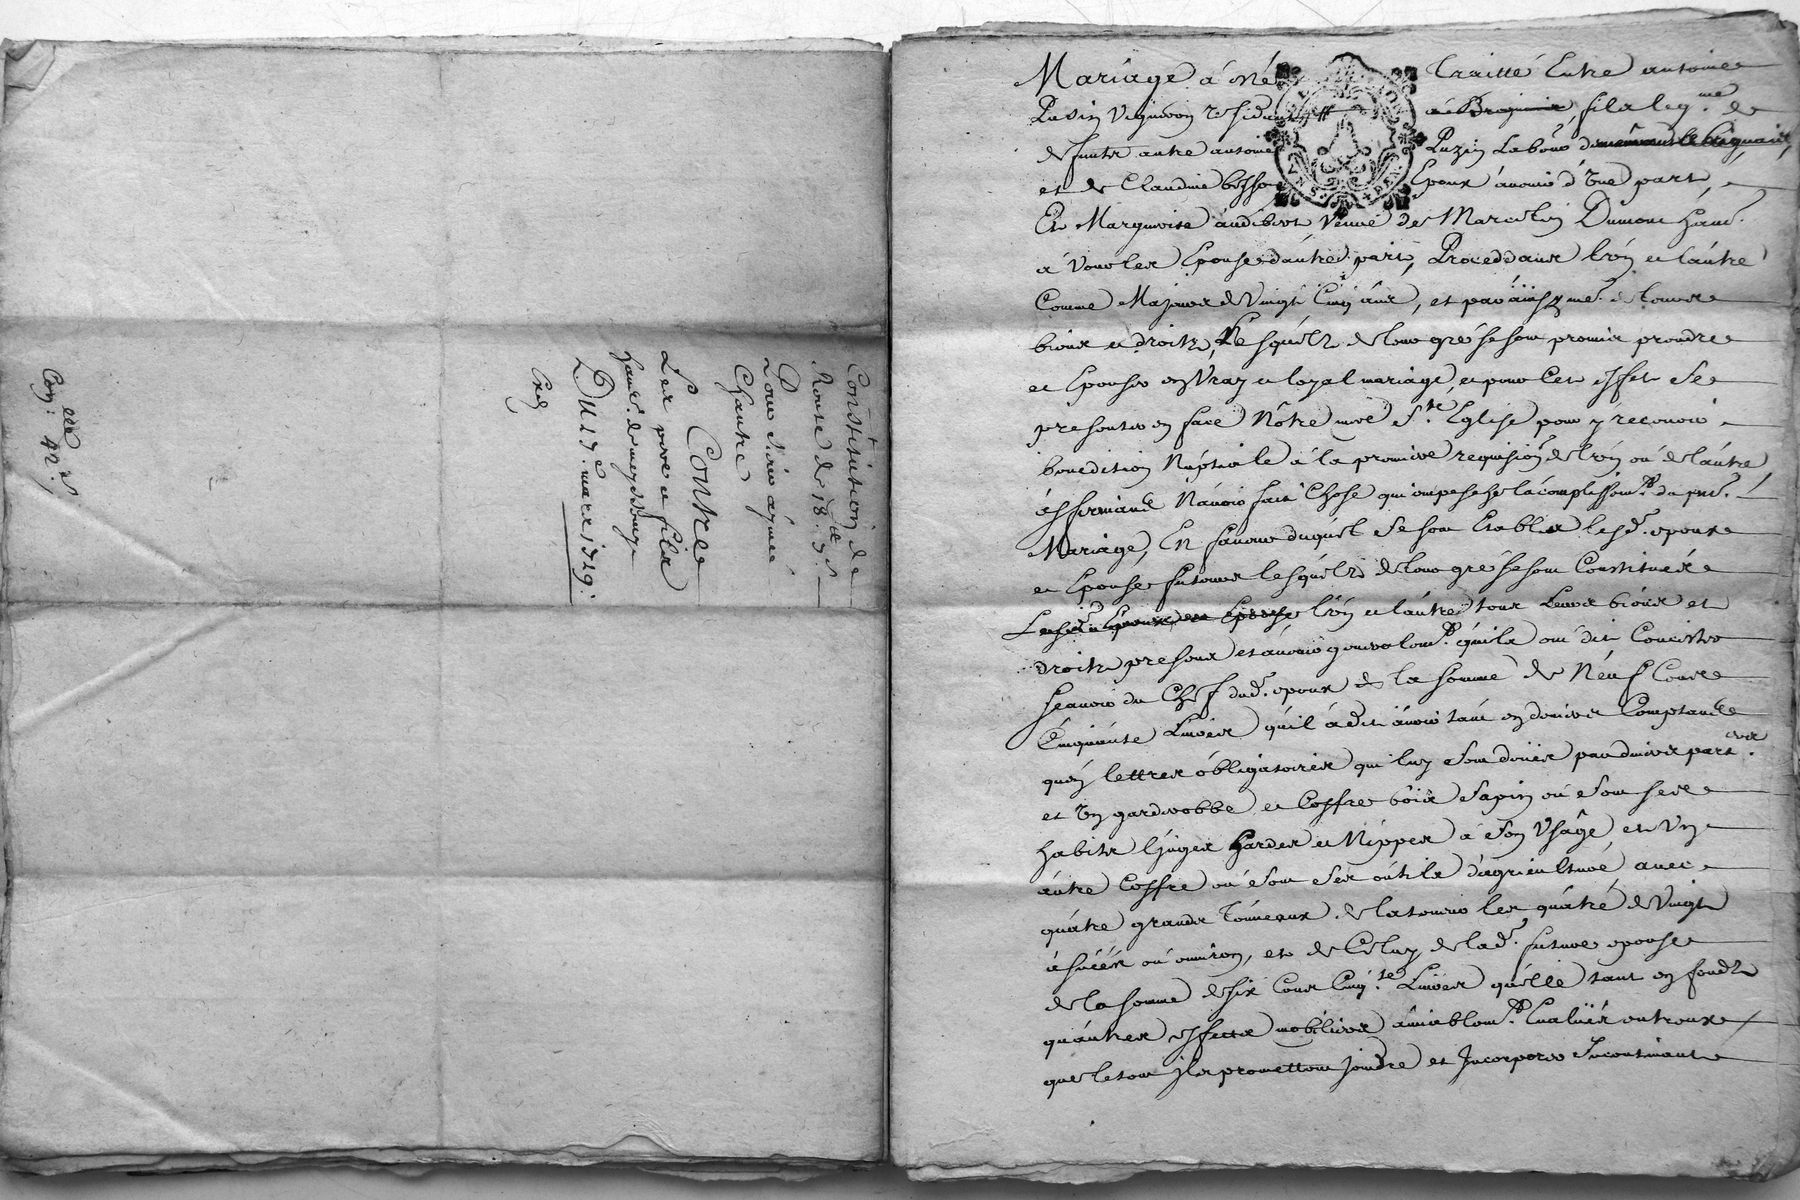 Constitution de
Rente de 18.# 7.s
Pour Sieur aymée
Chautre
Contre
Les pere et fils
Du 17.e mars 1719.
Mariage à été Traitté Entre antoine
Puzin Vigneron residant à fils leg.me de
defunts autre antoine Puzin Labour
et de Claudine Epoux avenir d'Une part,
Et Marguerite audibert, Veuve de Marcelin Dumont
à Vouloir Epouse d'autre part, Proceddants l'Un et l'autre
Comme Majeurs de Vingt Cinq ans, et par ainsy me. de leurs
biens et droits, Lesquels de leur gré se sont promis prendre
et Epouser en Vray et loyal mariage, et pour Cet effet se
presenter en face Nôtre mere S.te Eglise pour y recevoir
benediction Nuptiale à la premiere requisition de l'Un ou de l'autre
affirmants N'avoir fait Chose qui empesche l'acomplissem.t du pnt.
Mariage, En faveur duquel se sont Etablis lesd. epoux
et Epouse futeurs lesquels de leur gré se sont Constitués
l'Un et l'autre tous Leurs biens et
droits presents et avenir generalem.t qu'ils ont dit Concister
Scavoir du Chef dud. epoux de la somme de Neuf Cents
Cinquante Livres qu'il à dit avoir tant en deniers Comptants
qu'en lettres obligatoires qui luy sont dües par divers part.ers
et Un garderobbe et Coffre bois sapin ou sont ses
habits linges hardes et Nippes à son Usage, et Un
autre Coffre ou sont ses outils d'agriculture avec
quatre grands Tonneaux de la tenue les quatre de Vingt
asnées ou environ, et de Celuy de lad. future epouse
de la somme de six Cents Cinq.te Livres qu'elle tant en fonds
qu'autres effects mobiliers amiablem.t Evalués entreux
que le tout ils promettent joindre et Incorporer Incontinant